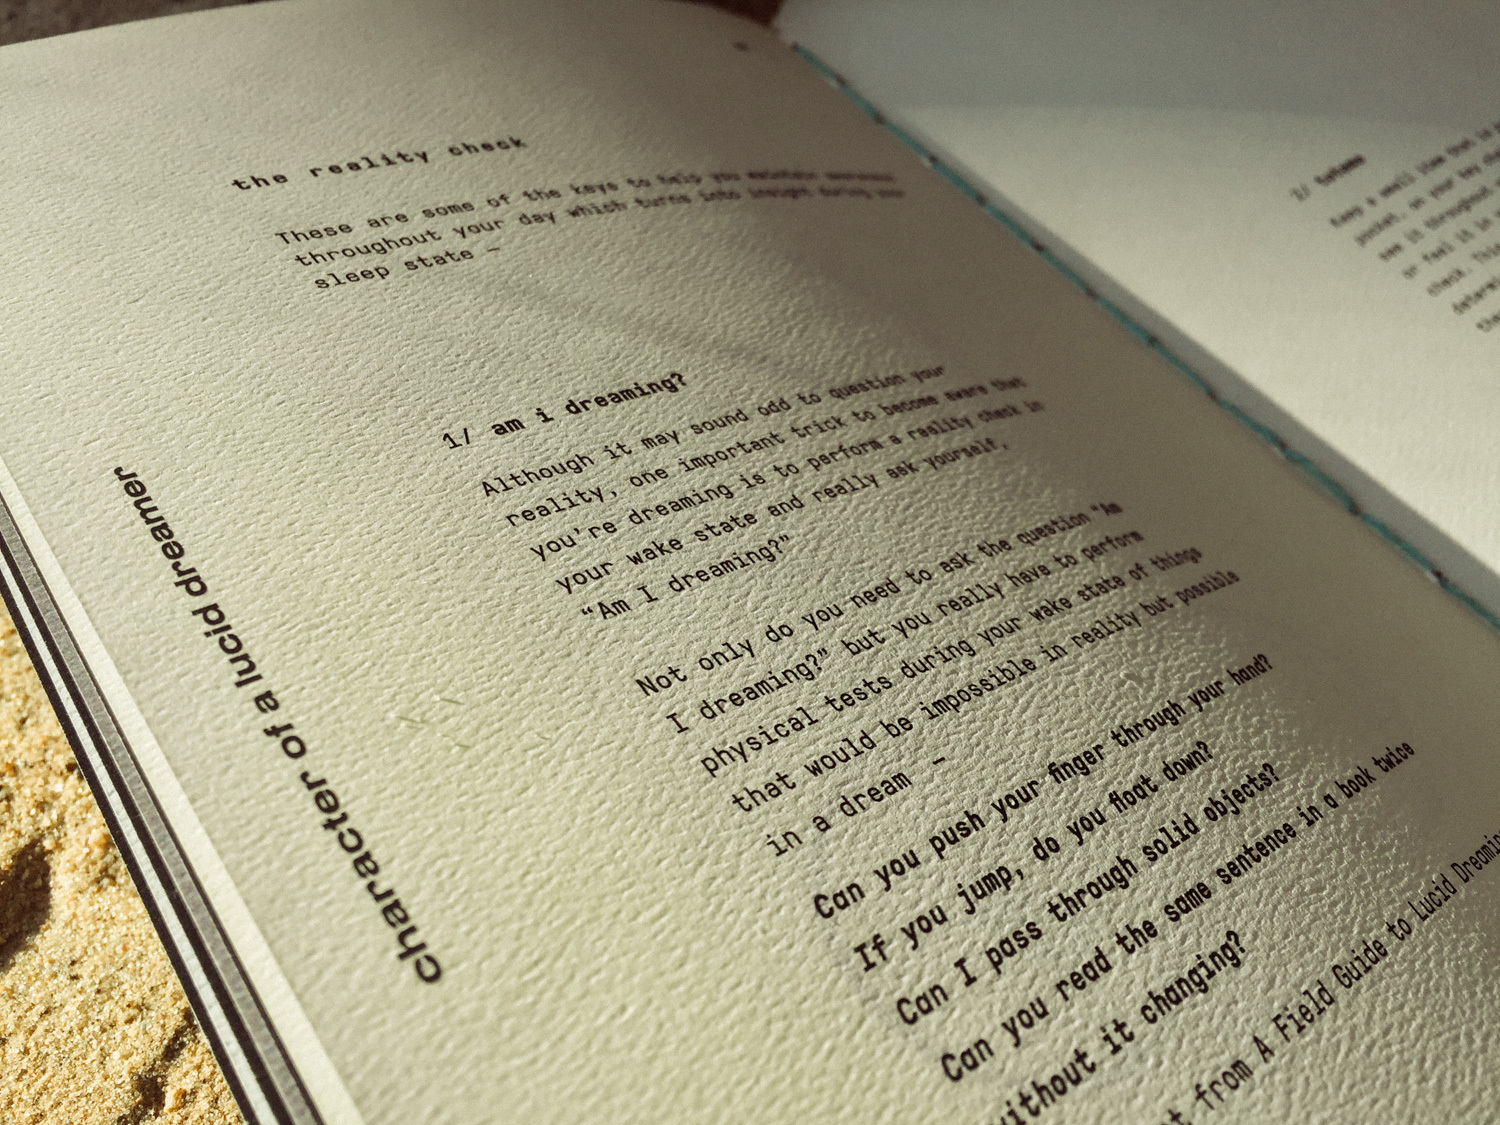 the reality check
These are some of the keys to help you maintain awareness
throughout your day which turns into insight during your
sleep state –
1/ am i dreaming?
Although it may sound odd to question your
reality, one important trick to become aware that
you're dreaming is to perform a reality check in
your wake state and really ask yourself,
“Am I dreaming?”
Not only do you need to ask the question “Am
I dreaming?” but you really have to perform
physical tests during your wake state of things
that would be impossible in reality but possible
in a dream –
Can you push your finger through your hand?
If you jump, do you float down?
Can I pass through solid objects?
Can you read the same sentence in a book twice
without it changing?
from A Field Guide to Lucid Dreaming
character of a lucid dreamer
2/ totems
Keep a small item that is
pocket, on your key
see it throughout
or feel it in
check. This